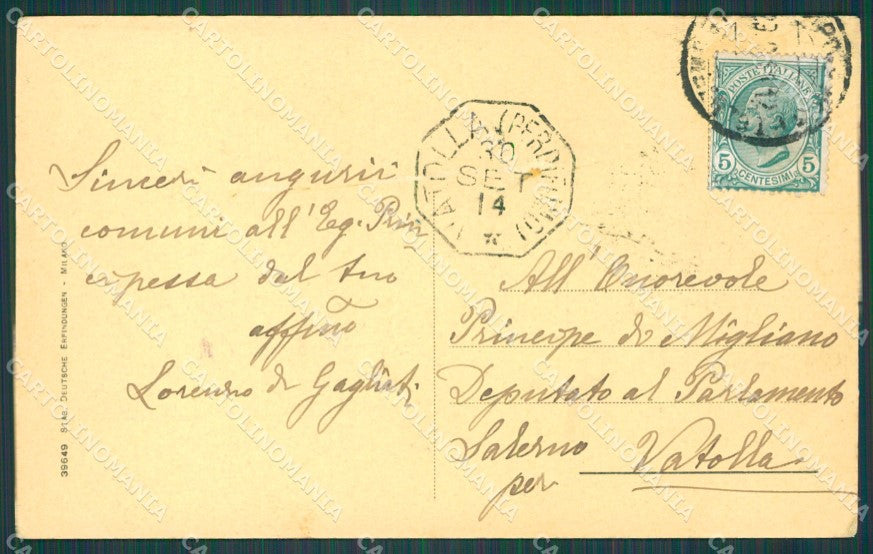 Sinceri augurii
comuni all'Eg. Prin
cipessa dal tuo
affmo
Lorenzo
All'Onorevole
Principe di Migliano
Deputato al Parlamento
Salerno
per Vatolla
VATOLLA (PERDIFUMO)
30
SET
14
POSTE ITALIANE
5 CENTESIMI 5
39649 STAB. DEUTSCHE ERFINDUNGEN - MILANO
CARTOLINOMANIA